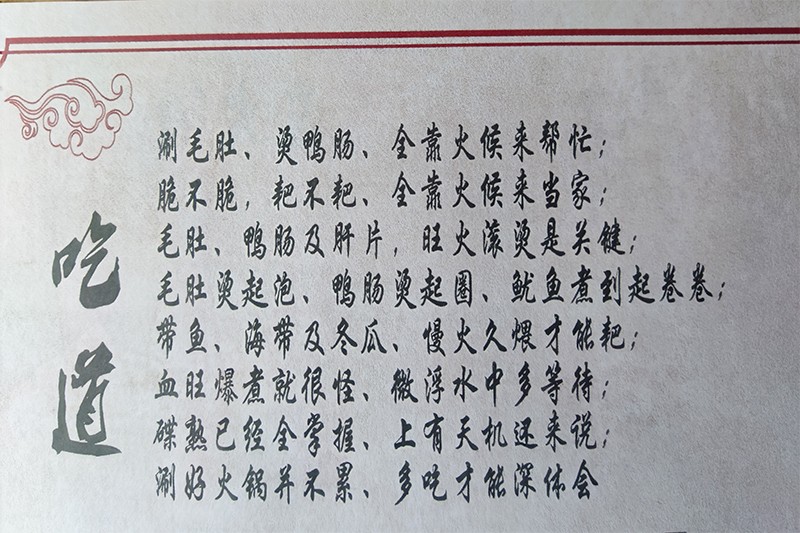 吃道
涮毛肚、烫鸭肠、全靠火候来帮忙；
脆不脆，耙不耙、全靠火候来当家；
毛肚、鸭肠及肝片，旺火滚烫是关键；
毛肚烫起泡、鸭肠烫起圈、鱿鱼煮到起卷卷；
带鱼、海带及冬瓜、慢火久煨才能耙；
血旺爆煮就很怪、微浮水中多等待；
碟熟已经全掌握、上有天机还来说；
涮好火锅并不累、多吃才能深体会